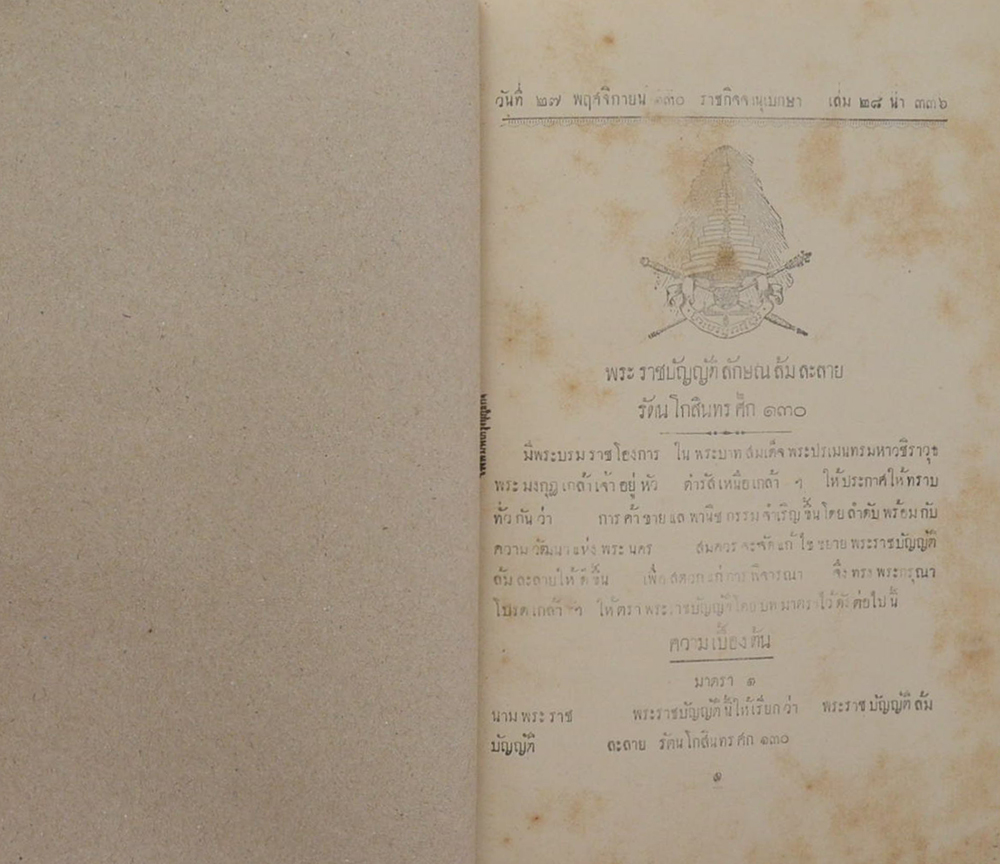 วันที่ ๒๗ พฤศจิกายน ๑๓๐ ราชกิจจานุเบกษา เล่ม ๒๘ น่า ๓๓๖
พระราชบัญญัติลักษณล้มละลาย
รัตนโกสินทรศก ๑๓๐
มีพระบรมราชโองการ ในพระบาทสมเด็จพระปรเมนทรมหาวชิราวุธ
พระมงกุฎเกล้าเจ้าอยู่หัว ดำรัสเหนือเกล้า ฯ ให้ประกาศให้ทราบ
ทั่วกันว่า การค้าขายแลพานิชกรรมจำเริญขึ้นโดยลำดับพร้อมกับ
ความวัฒนาแห่งพระนคร สมควรจะจัดแก้ไขขยายพระราชบัญญัติ
ล้มละลายให้ดีขึ้น เพื่อสดวกแก่การพิจารณา จึงทรงพระกรุณา
โปรดเกล้า ฯ ให้ตราพระราชบัญญัติโดยบทมาตราไว้ดังต่อไปนี้
ความเบื้องต้น
มาตรา ๑
นามพระราช พระราชบัญญัตินี้ให้เรียกว่า พระราชบัญญัติล้ม
บัญญัติ ละลาย รัตนโกสินทรศก ๑๓๐
๑